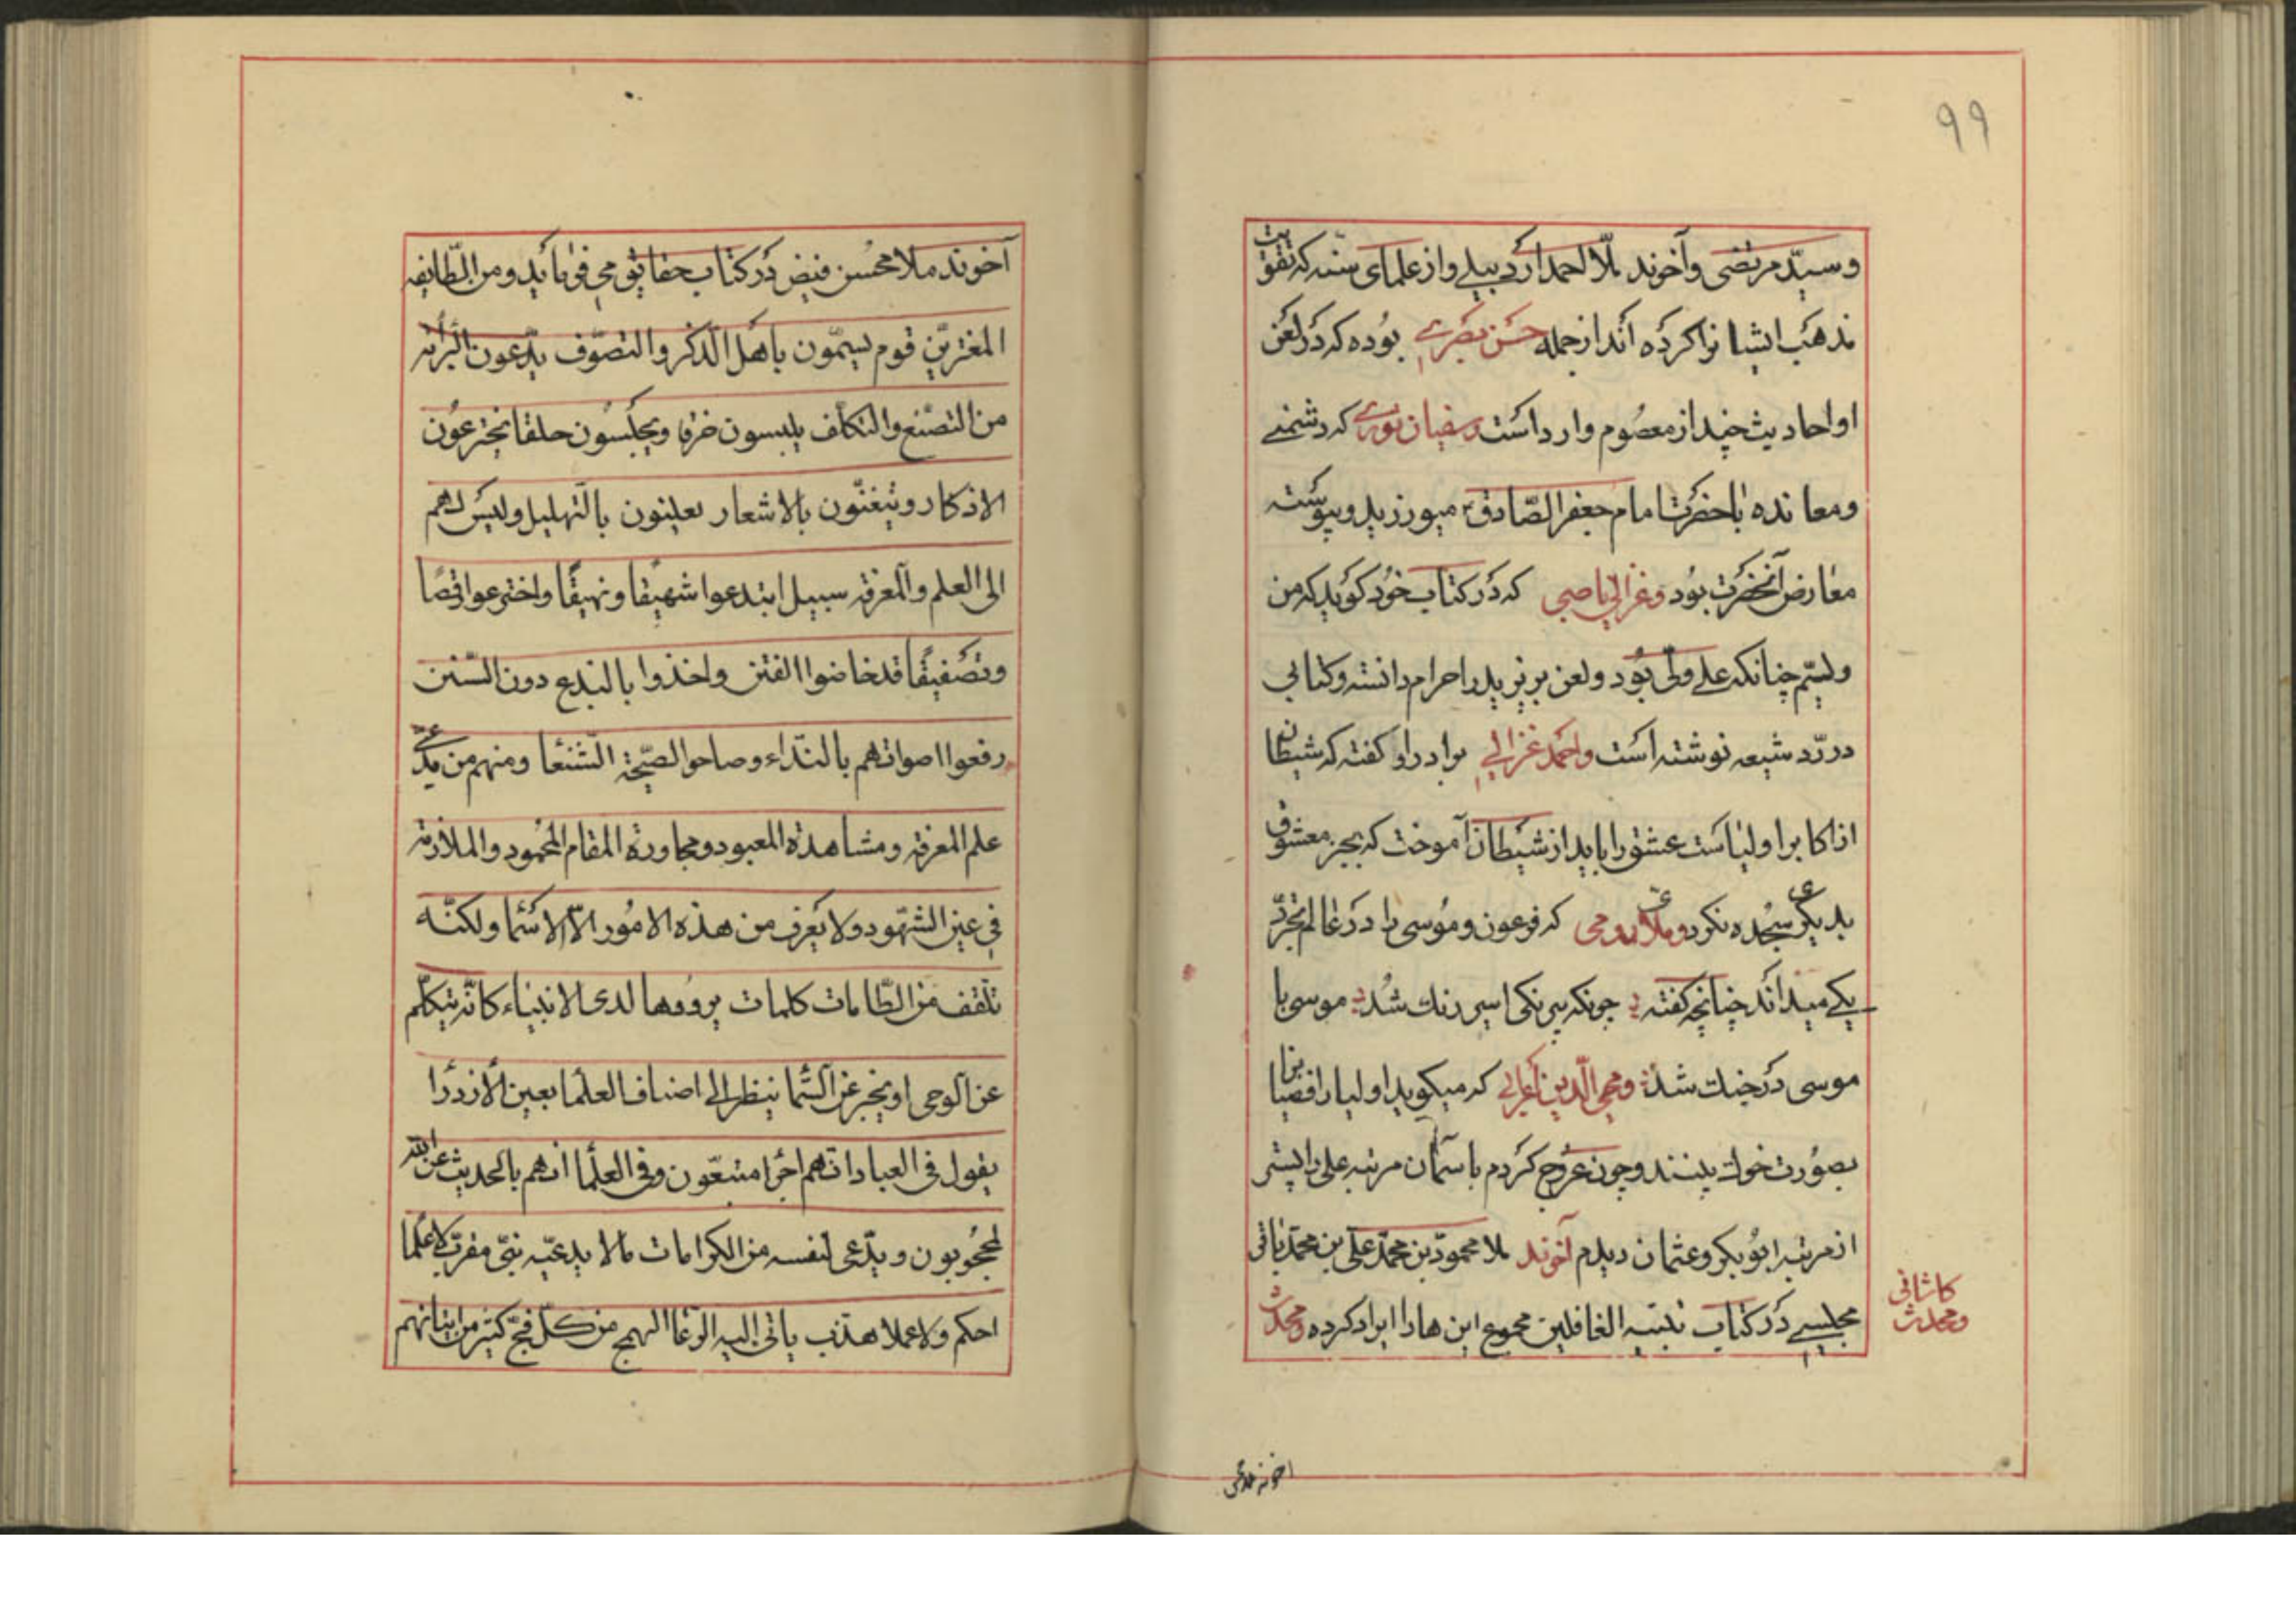 ۹۹
وسیّد مرتضی وآخوند ملّا احمد اردبیلے واز علمای سنّه که تقویت
مذهب ایشانرا کرده اند از جمله حسن بصرے بوده که در لعن
او احادیث چند از معصوم وارد است وسفیان ثورے که دشمنے
ومعانده با حضرت امام جعفر الصّادق میورزید وپیوسته
معارض آنحضرت بود وغزالی ناصبی که در کتاب خود کوید که من
ولیّم چنانکه علے ولّی بود ولعن بر یزید را حرام دانسته وکتابی
در ردّ شیعه نوشته است واحمد غزالے برادر او کفته که شیطان
از اکابر اولیاست عشق را باید از شیطان آموخت که بجز معشوق
بدیکری سجده نکرد وملای رومی که فرعون وموسی را در عالم تجرّد
یکے میدانند چنانچه کفته چونکه بیرنکی اسیر رنك شد موسی با
موسی در جنك شد ومحی الّدین اعرابے که میکوید اولیا رافضیانرا
بصورت خوك بینند وچون عروج کردم باسمان مرتبه علی را پستر
از مرتبه ابوبکر وعثمان دیدم آخوند ملا محمود بن محمّد علی بن محمّد باقی
مجلسے در کتاب تنبیه الغافلین مجموع این هارا ایراد کرده ومحدث
کاشانی
ومحدث
آخوند ملا محسن فیض در کتاب حقایق می فرمایند ومن الطّایفه
المغترین قوم یسمّون باهل الذکر والتصوّف یدّعون البرائه
من التصنّع والتکلّف یلبسون خرقا ویجلسون حلقا یخترعون
الاذکار ویتغنّون بالاشعار یعلنون بالتهلیل ولیس لهم
الی العلم والمعرفه سبیل ابتدعوا شهیقا ونهیقا واخترعوا رقصا
وتصفیقا قد خاضوا الفتن واخذوا بالبدع دون السّنن
رفعوا اصواتهم بالنّداء وصاحوا الصّیحة الشّنعا ومنهم من یدّعے
علم المعرفه ومشاهدة المعبود ومجاورة المقام المحمود والملازمه
فی عین الشّهود ولا یعرف من هذه الامور الّا الاسما ولکنّه
تلقف من الطّامات کلمات یرددها لدی الانبیاء کانّه یتکلّم
عن الوحی او یخبر عن السّما ینظر الی اصناف العلما بعین الازدرا
یقول فی العباد انهم اجرا متبعّون وفی العلما انهم بالحدیث عن الله
لمحجوبون ویدّعی لنفسه من الکرامات مالا یدعیّه نبیّ مقرّب لا علما
احکم ولا عملا هذب یاتی الیه الرّعا الهمج من کلّ فجّ کثر من اتیانهم